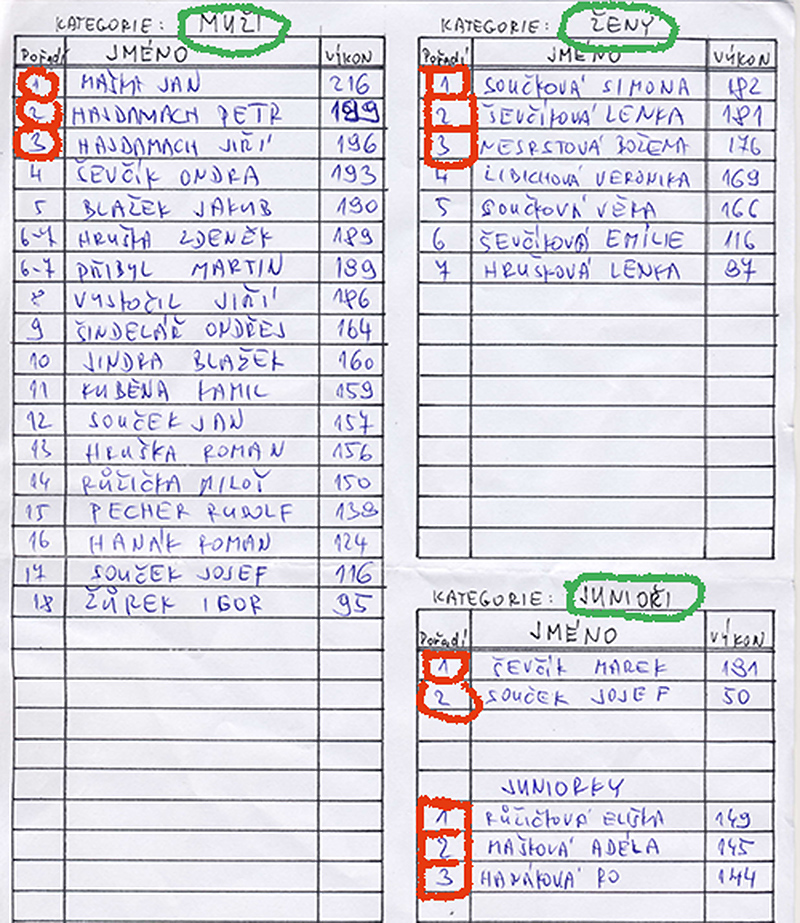 KATEGORIE: MUŽI
Pořadí JMÉNO VÝKON
1 MAŠKA JAN 216
2 HAJDAMACH PETR 199
3 HAJDAMACH JIŘÍ 196
4 ČEVČÍK ONDRA 193
5 BLAŽEK JAKUB 190
6-7 HRUŠKA ZDENĚK 189
6-7 PŘIBYL MARTIN 189
8 VYSKOČIL JIŘÍ 186
9 ŠINDELÁŘ ONDŘEJ 164
10 JINDRA BLAŽEK 160
11 KUBĚNA KAMIL 159
12 SOUČEK JAN 157
13 HRUŠKA ROMAN 156
14 RŮŽIČKA MILOŠ 150
15 PECHER RUDOLF 138
16 HANÁK ROMAN 124
17 SOUČEK JOSEF 116
18 ŽŮREK IGOR 95
KATEGORIE: ŽENY
Pořadí JMÉNO VÝKON
1 SOUČKOVÁ SIMONA 182
2 ŠEVČÍKOVÁ LENKA 181
3 NESRSTOVÁ BOŽENA 176
4 LIBICHOVÁ VERONIKA 169
5 SOUČKOVÁ VĚRA 166
6 ŠEVČÍKOVÁ EMÍLIE 116
7 HRUŠKOVÁ LENKA 87
KATEGORIE: JUNIOŘI
Pořadí JMÉNO VÝKON
1 ČEVČÍK MAREK 181
2 SOUČEK JOSEF 50
JUNIORKY
1 RŮŽIČKOVÁ ELIŠKA 149
2 MAŠKOVÁ ADÉLA 145
3 HANÁKOVÁ RO 144